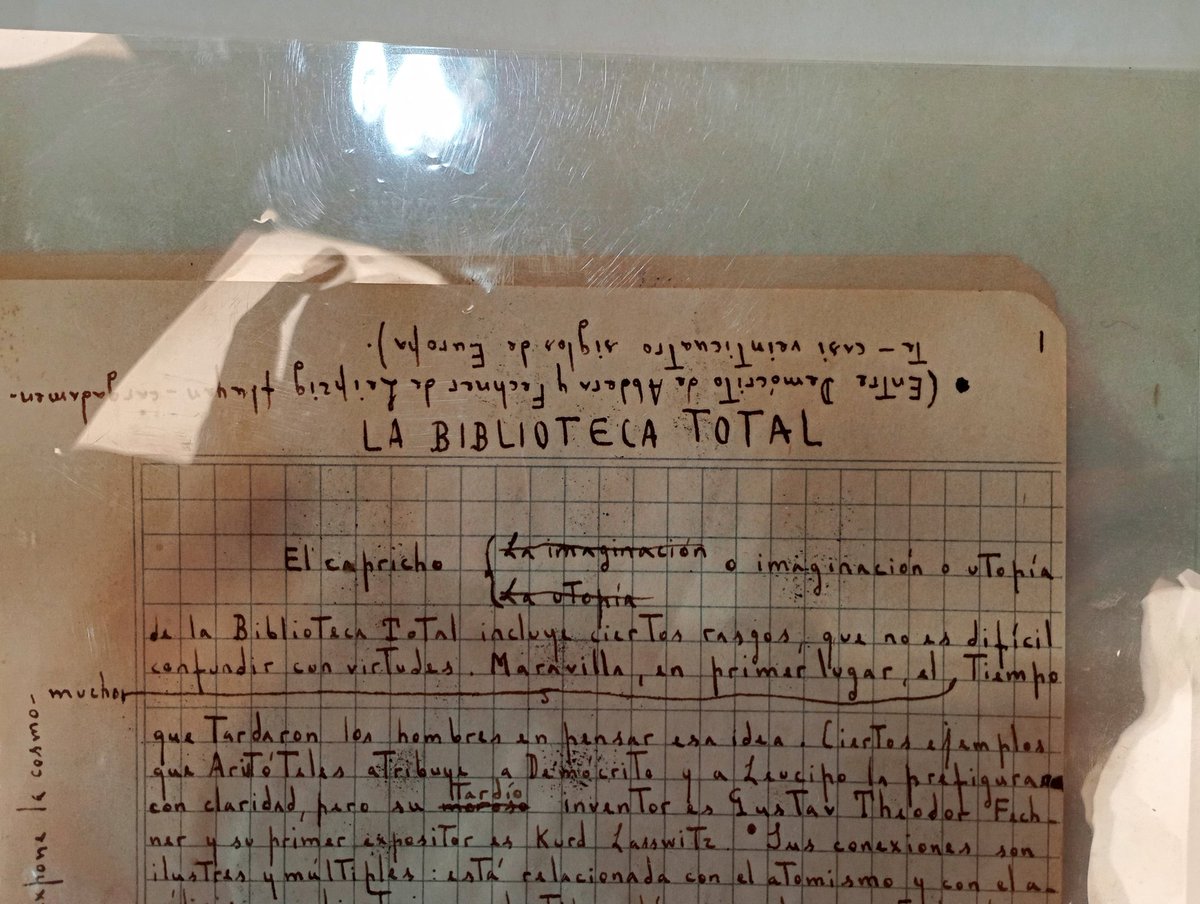 1
• (Entre Demócrito de Abdera y Fechner de Leipzig fluyen - cargadamen-
te - casi veinticuatro siglos de Europa).
LA BIBLIOTECA TOTAL
El capricho { La imaginación o imaginación o utopía
{ La utopía
de la Biblioteca Total incluye ciertos rasgos, que no es difícil
confundir con virtudes. Maravilla, en primer lugar, el tiempo
mucho
que tardaron los hombres en pensar esa idea. Ciertos ejemplos
que Aristóteles atribuye a Demócrito y a Leucipo la prefiguran
tardío
con claridad, pero su moroso inventor es Gustav Theodor Fech-
ner y su primer expositor es Kurd Lasswitz. • Sus conexiones son
ilustres y múltiples: está relacionada con el atomismo y con el a-
expone la cosmo-